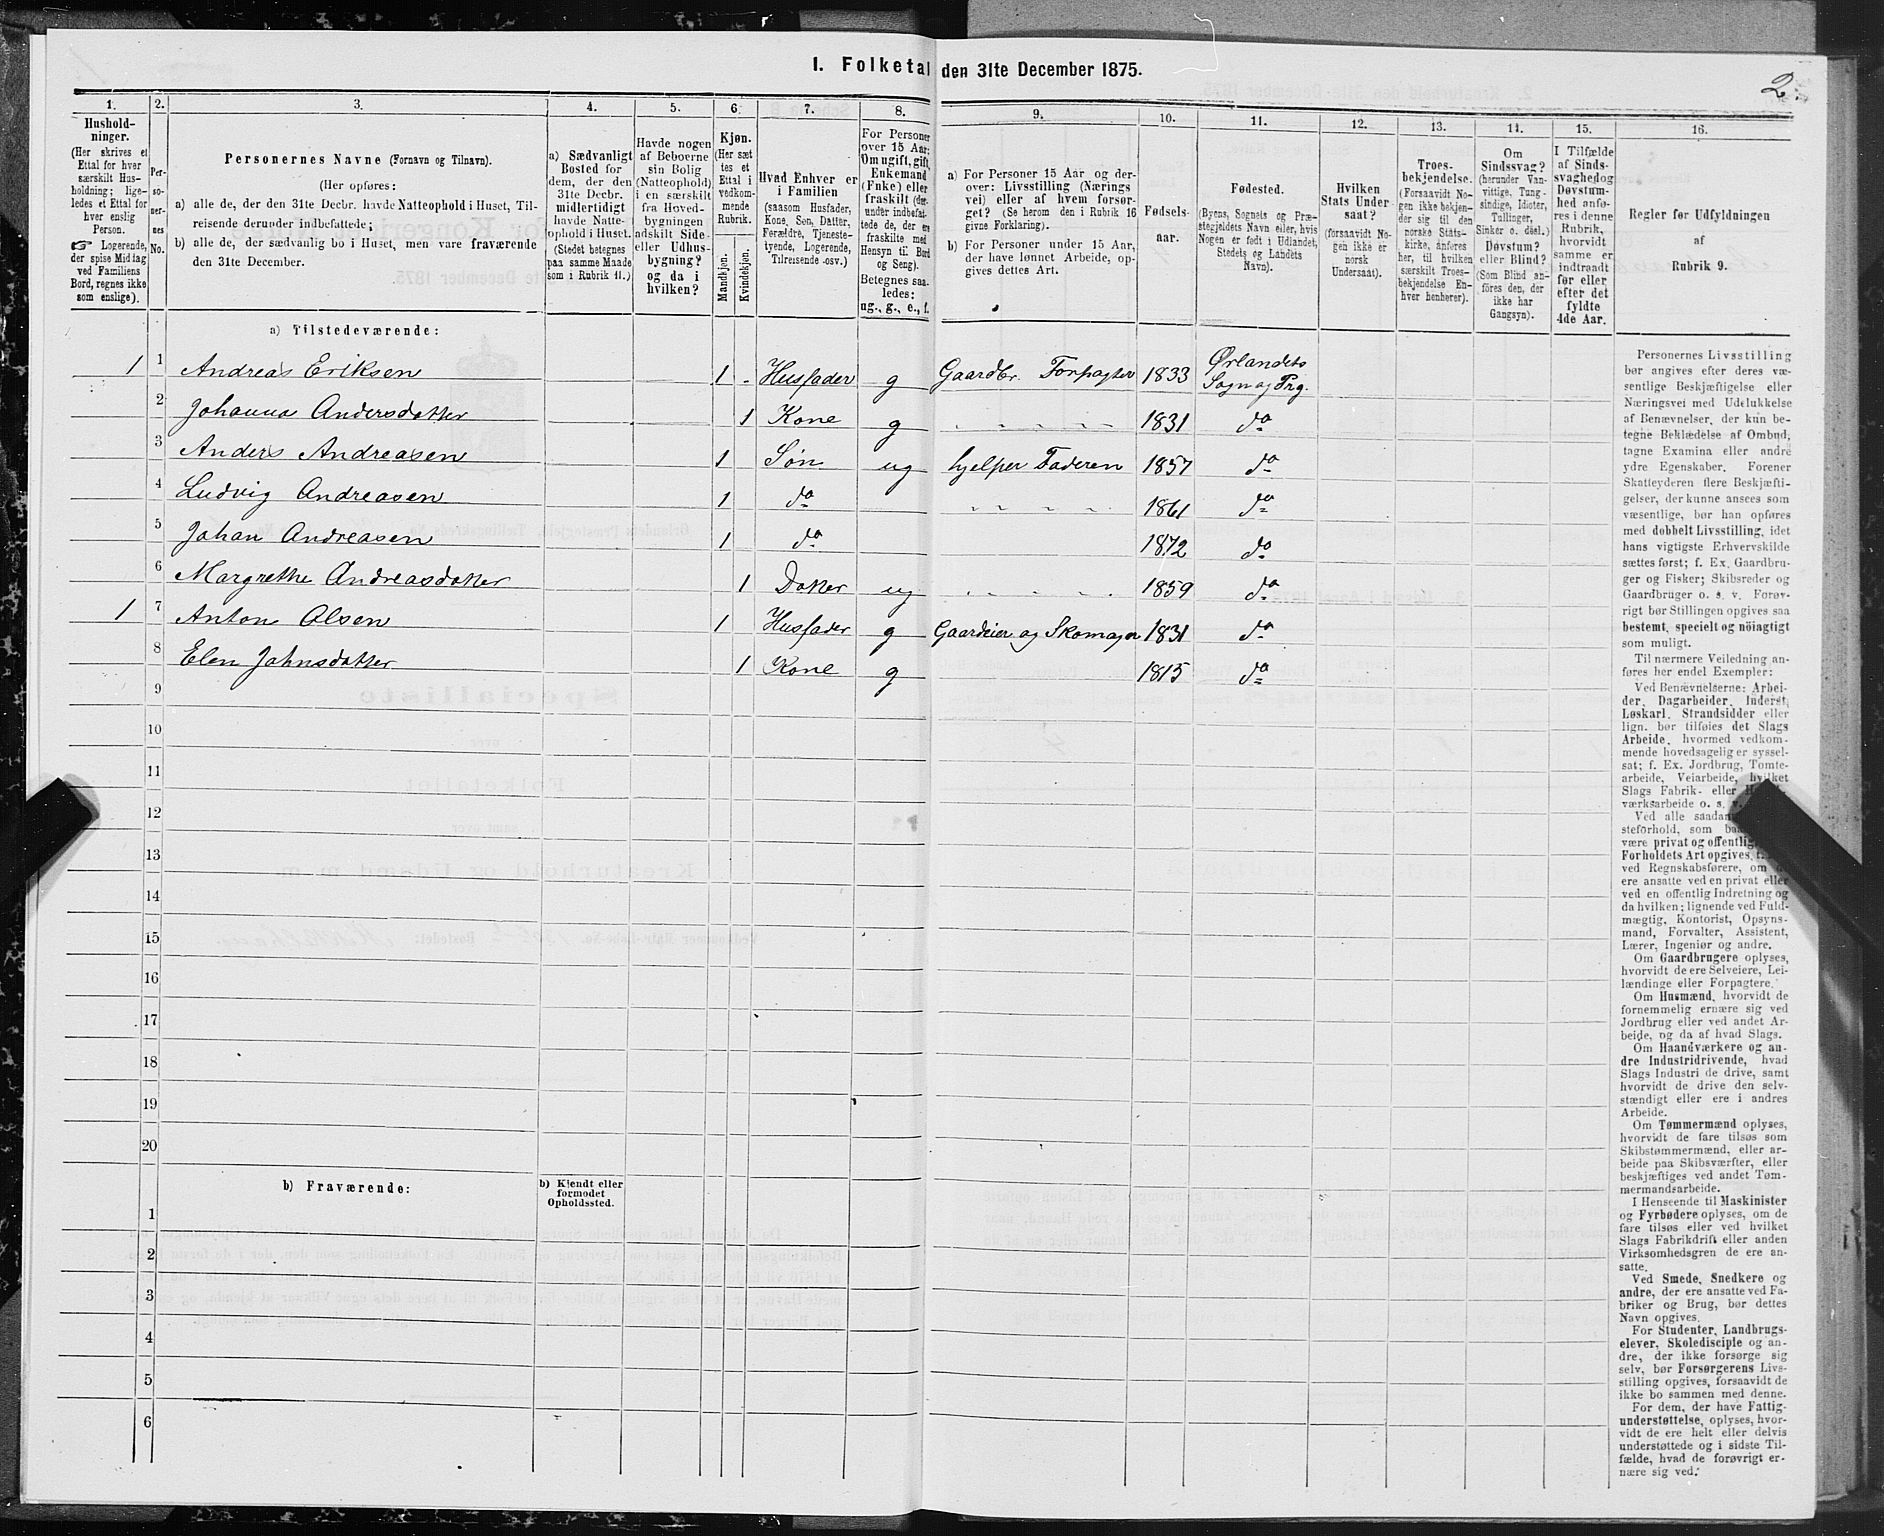 I. Folketal den 31te December 1875.
2.
1. 2. 3. 4. 5. 6. 7. 8. 9. 10. 11. 12. 13. 14. 15. 16.
Hushold-
ninger.
(Her skrives et
Ettal for hver
særskilt Hus-
holdning; lige-
ledes et Ettal for
hver enslig
Person.
☞ Logerende,
der spise Middag
ved Familiens
Bord, regnes ikke
som enslige).
Per-
so-
ner-
nes
No.
Personernes Navne (Fornavn og Tilnavn).
(Her opføres:
a) alle de, der den 31te Decbr. havde Natteophold i Huset, Til-
reisende derunder indbefattede;
b) alle de, der sædvanlig bo i Huset, men vare fraværende
den 31te December.
a) Sædvanligt
Bosted for
dem, der den
31te Decbr.
midlertidigt
havde Natte-
ophold i Huset.
(Stedet betegnes
paa samme Maade
som i Rubrik 11.)
Havde nogen
af Beboerne
sin Bolig
(Natteophold)
i en særskilt
fra Hoved-
bygningen
adskilt Side-
eller Udhus-
bygning?
og da i
hvilken?
Kjøn.
(Her sæt
tes et
Ettal i
vedkom-
mende
Rubrik.
Mandkjøn.
Kvindekjøn.
Hvad Enhver er
i Familien
(saasom Husfader,
Kone, Søn, Datter,
Forældre, Tjeneste-
tyende, Logerende,
Tilreisende osv.)
For Personer
over 15 Aar:
Om ugift, gift,
Enkemand
(Enke) eller
fraskilt (der-
under indbefat-
tede de, der ere
fraskilte med
Hensyn til Bord
og Seng).
Betegnes saa-
ledes:
ug., g., e., f.
a) For Personer 15 Aar og der-
over: Livsstilling (Nærings
vei) eller af hvem forsør-
get? (Se herom den i Rubrik 16
givne Forklaring).
b) For Personer under 15 Aar,
der have lønnet Arbeide, op-
gives dettes Art.
Fødsels-
aar.
Fødested.
(Byens, Sognets og Præ-
stegjeldets Navn eller, hvis
Nogen er født i Udlandet,
Stedets og Landets
Navn).
Hvilken
Stats Under
saat?
(forsaavidt No-
gen ikke er
norsk
Undersaat).
Troes-
bekjendelse.
(Forsaavidt No-
gen ikke bekjen-
der sig til den
norske Stats-
kirke, anføres
her, til hvilken
særskilt Troes-
bekjendelse En-
hver henhører).
Om
Sindssvag?
(herunder Van-
vittige, Tung-
sindige, Idioter,
Tullinger,
Sinker o. desl.)
Døvstum?
eller Blind?
(Som Blind an-
føres den, der
ikke har
Gangsyn).
I Tilfælde
af Sinds-
svaghedog
Døvstum-
hed anfø-
res i denne
Rubrik,
hvorvidt
samme er
indtraadt
før eller
efter det
fyldte
4de Aar.
Regler før Udfyldningen
af
Rubrik 9.
a) Tilstedeværende:
1 1 Andreas Eriksen 1 Husfader g Gaardbr. Forpagter 1833 Ørlandets Sogn og Prg.
2 Johanna Andersdatter 1 Kone g " " " " " 1831 do
3 Anders Andreasen 1 Søn ug hjelper Faderen 1857 do
4 Ludvig Andreasen 1 do " " " " 1861 do
5 Johan Andreasen 1 do 1872 do
6 Margrethe Andreasdatter 1 Datter ug " " " " " 1859 do
1 7 Anton Olsen 1 Husfader g Gaardeier og Skomager 1831 do
8 Elen Jahnsdatter 1 Kone g 1815 do
9
10
11
12
13
14
15
16
17
18
19
20
b) Fraværende:
b) Kjendt eller
formodet
Opholdssted.
1
2
3
4
5
6
Personernes Livsstilling
bør angives efter deres væ-
sentlige Beskjæftigelse eller
Næringsvei med Udelukkelse
af Benævnelser, der kun be-
tegne Beklædelse af Ombud,
tagne Examina eller andre
ydre Egenskaber. Forener
Skatteyderen flere Beskjæfti-
gelser, der kunne ansees som
væsentlige, bør han opføres
med dobbelt Livsstilling, idet
hans vigtigste Erhvervskilde
sættes først; f. Ex. Gaardbru-
ger og Fisker; Skibsreder og
Gaardbruger o. s. v. Forøv-
rigt bør Stillingen opgives saa
bestemt, specielt og nöiagtigt
som muligt.
Til nærmere Veiledning an-
føres her endel Exempler:
Ved Benævnelserne: Arbei-
der, Dagarbeider, Inderst,
Løskarl, Strandsidder eller
lign. bør tilføies det Slags
Arbeide, hvormed vedkom-
mende hovedsagelig er syssel-
sat; f. Ex. Jordbrug, Tomte-
arbeide, Veiarbeide, hvilket
Slags Fabrik- eller
værksarbeide o. s. v.
Ved alle saadan
steforhold, som
være privat og offentlig,
Forholdets Art opgives,
ved Regnskabsførere, om
ere ansatte ved en privat eller
ved en offentlig Indretning og
da hvilken; lignende ved Fuld-
mægtig, Kontorist, Opsyns-
mand, Forvalter, Assistent,
Lærer, Ingeniør og andre.
Om Gaardbrugere oplyses,
hvorvidt de ere Selveiere, Lei-
lændinge eller Forpagtere.
Om Husmænd, hvorvidt de
fornemmelig ernære sig ved
Jordbrug eller ved andet Ar-
beide, og da af hvad Slags.
Om Haandværkere og an-
dre Industridrivende, hvad
Slags Industri de drive, samt
hvorvidt de drive den selv-
stændigt eller ere i andres
Arbeide.
Om Tømmermænd oplyses,
hvorvidt de fare tilsøs som
Skibstømmermænd, eller ar-
beide paa Skibsværfter, eller
beskjæftiges ved andet Tøm-
mermandsarbeide.
I Henseende til Maskinister
og Fyrbødere oplyses, om de
fare tilsøs eller ved hvilket
Slags Fabrikdrift eller anden
Virksomhedsgren de ere an-
satte.
Ved Smede, Snedkere og
andre, der ere ansatte ved Fa-
briker og Brug, bør dettes
Navn opgives.
For Studenter, Landbrugs-
elever, Skoledisciple og an-
dre, der ikke forsørge sig
selv, bør Forsørgerens Livs-
stilling opgives, forsaavidt de
ikke bo sammen med denne.
For dem, der have Fattig-
understøttelse, oplyses, hvor-
vidt de ere helt eller delvis
understøttede og i sidste Til-
fælde, hvad de forøvrigt er-
nære sig ved.